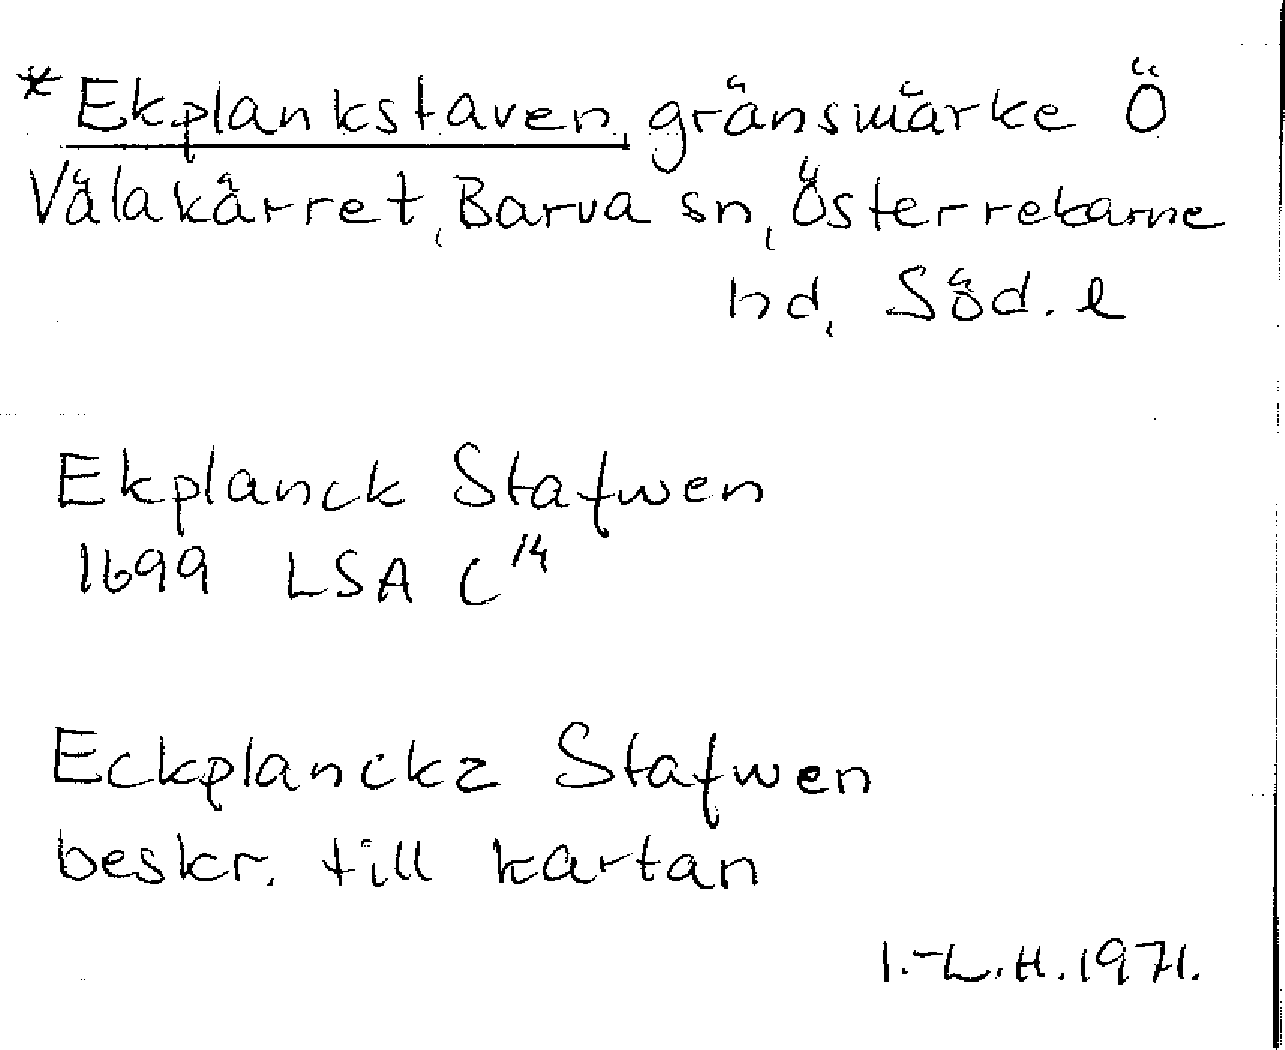 *Ekplankstaven, gränsmärke Ö
Välakärret, Barva sn, Österrekarne
hd, Söd. l
Ekplanck Stafwen
1699 LSA C 14
Eckplanckz Stafwen
beskr. till kartan
I.-L.H. 1971.